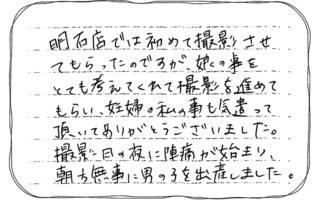 明石店では初めて撮影させ
てもらったのですが、娘の事を
とても考えてくれて撮影を進めて
もらい、妊婦の私の事も気遣って
頂いてありがとうございました。
撮影日の夜に陣痛が始まり、
朝方無事に男の子を出産しました。